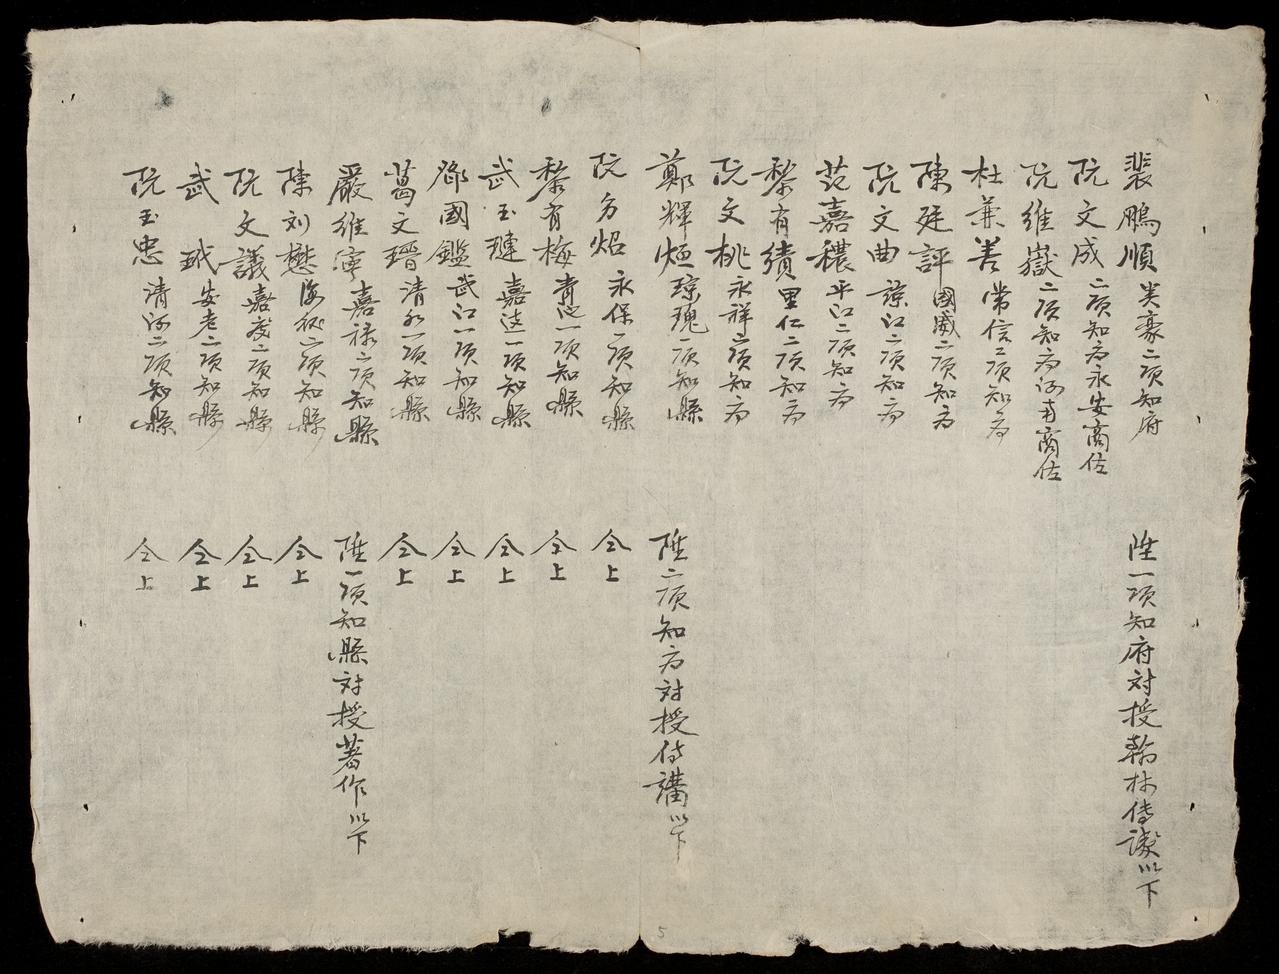 裴鵬順 美豪二項知府 陞一項知府対授翰林侍讀以下
阮文成 二項知府永安商佐
阮維嶽 二項知府河南商佐
杜兼善 常信二項知府
陳廷評 國威二項知府
阮文曲 諒江二項知府
范嘉穠 平江二項知府
黎有績 里仁二項知府
阮文桃 永祥二項知府
鄭輝烜 瓊瑰一項知縣 陞二項知府対授侍講以下
阮名炤 永保一項知縣 仝上
黎有梅 青沔一項知縣 仝上
武玉璉 嘉遠一項知縣 仝上
鄧國鑑 武江一項知縣 仝上
葛文瑨 清水一項知縣 仝上
嚴維寧 嘉禄二項知縣 陞一項知縣対授著作以下
陳刘懋 二項知縣 仝上
阮文議 嘉茂二項知縣 仝上
武珬 安老二項知縣 仝上
阮玉忠 清河二項知縣 仝上
5